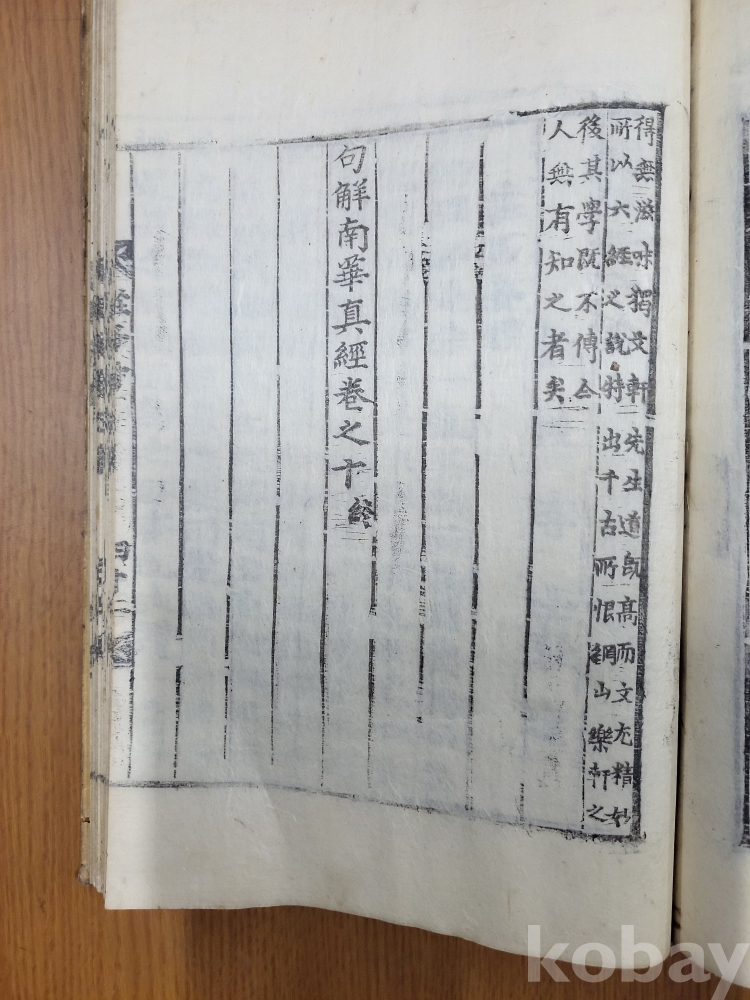 得無滋味獨文軒先生道既高而文尤精妙
所以六經之說特出千古所恨網山樂軒之
後其學既不傳今
人無有知之者矣
句解南華真經卷之十終
四十二
kobay